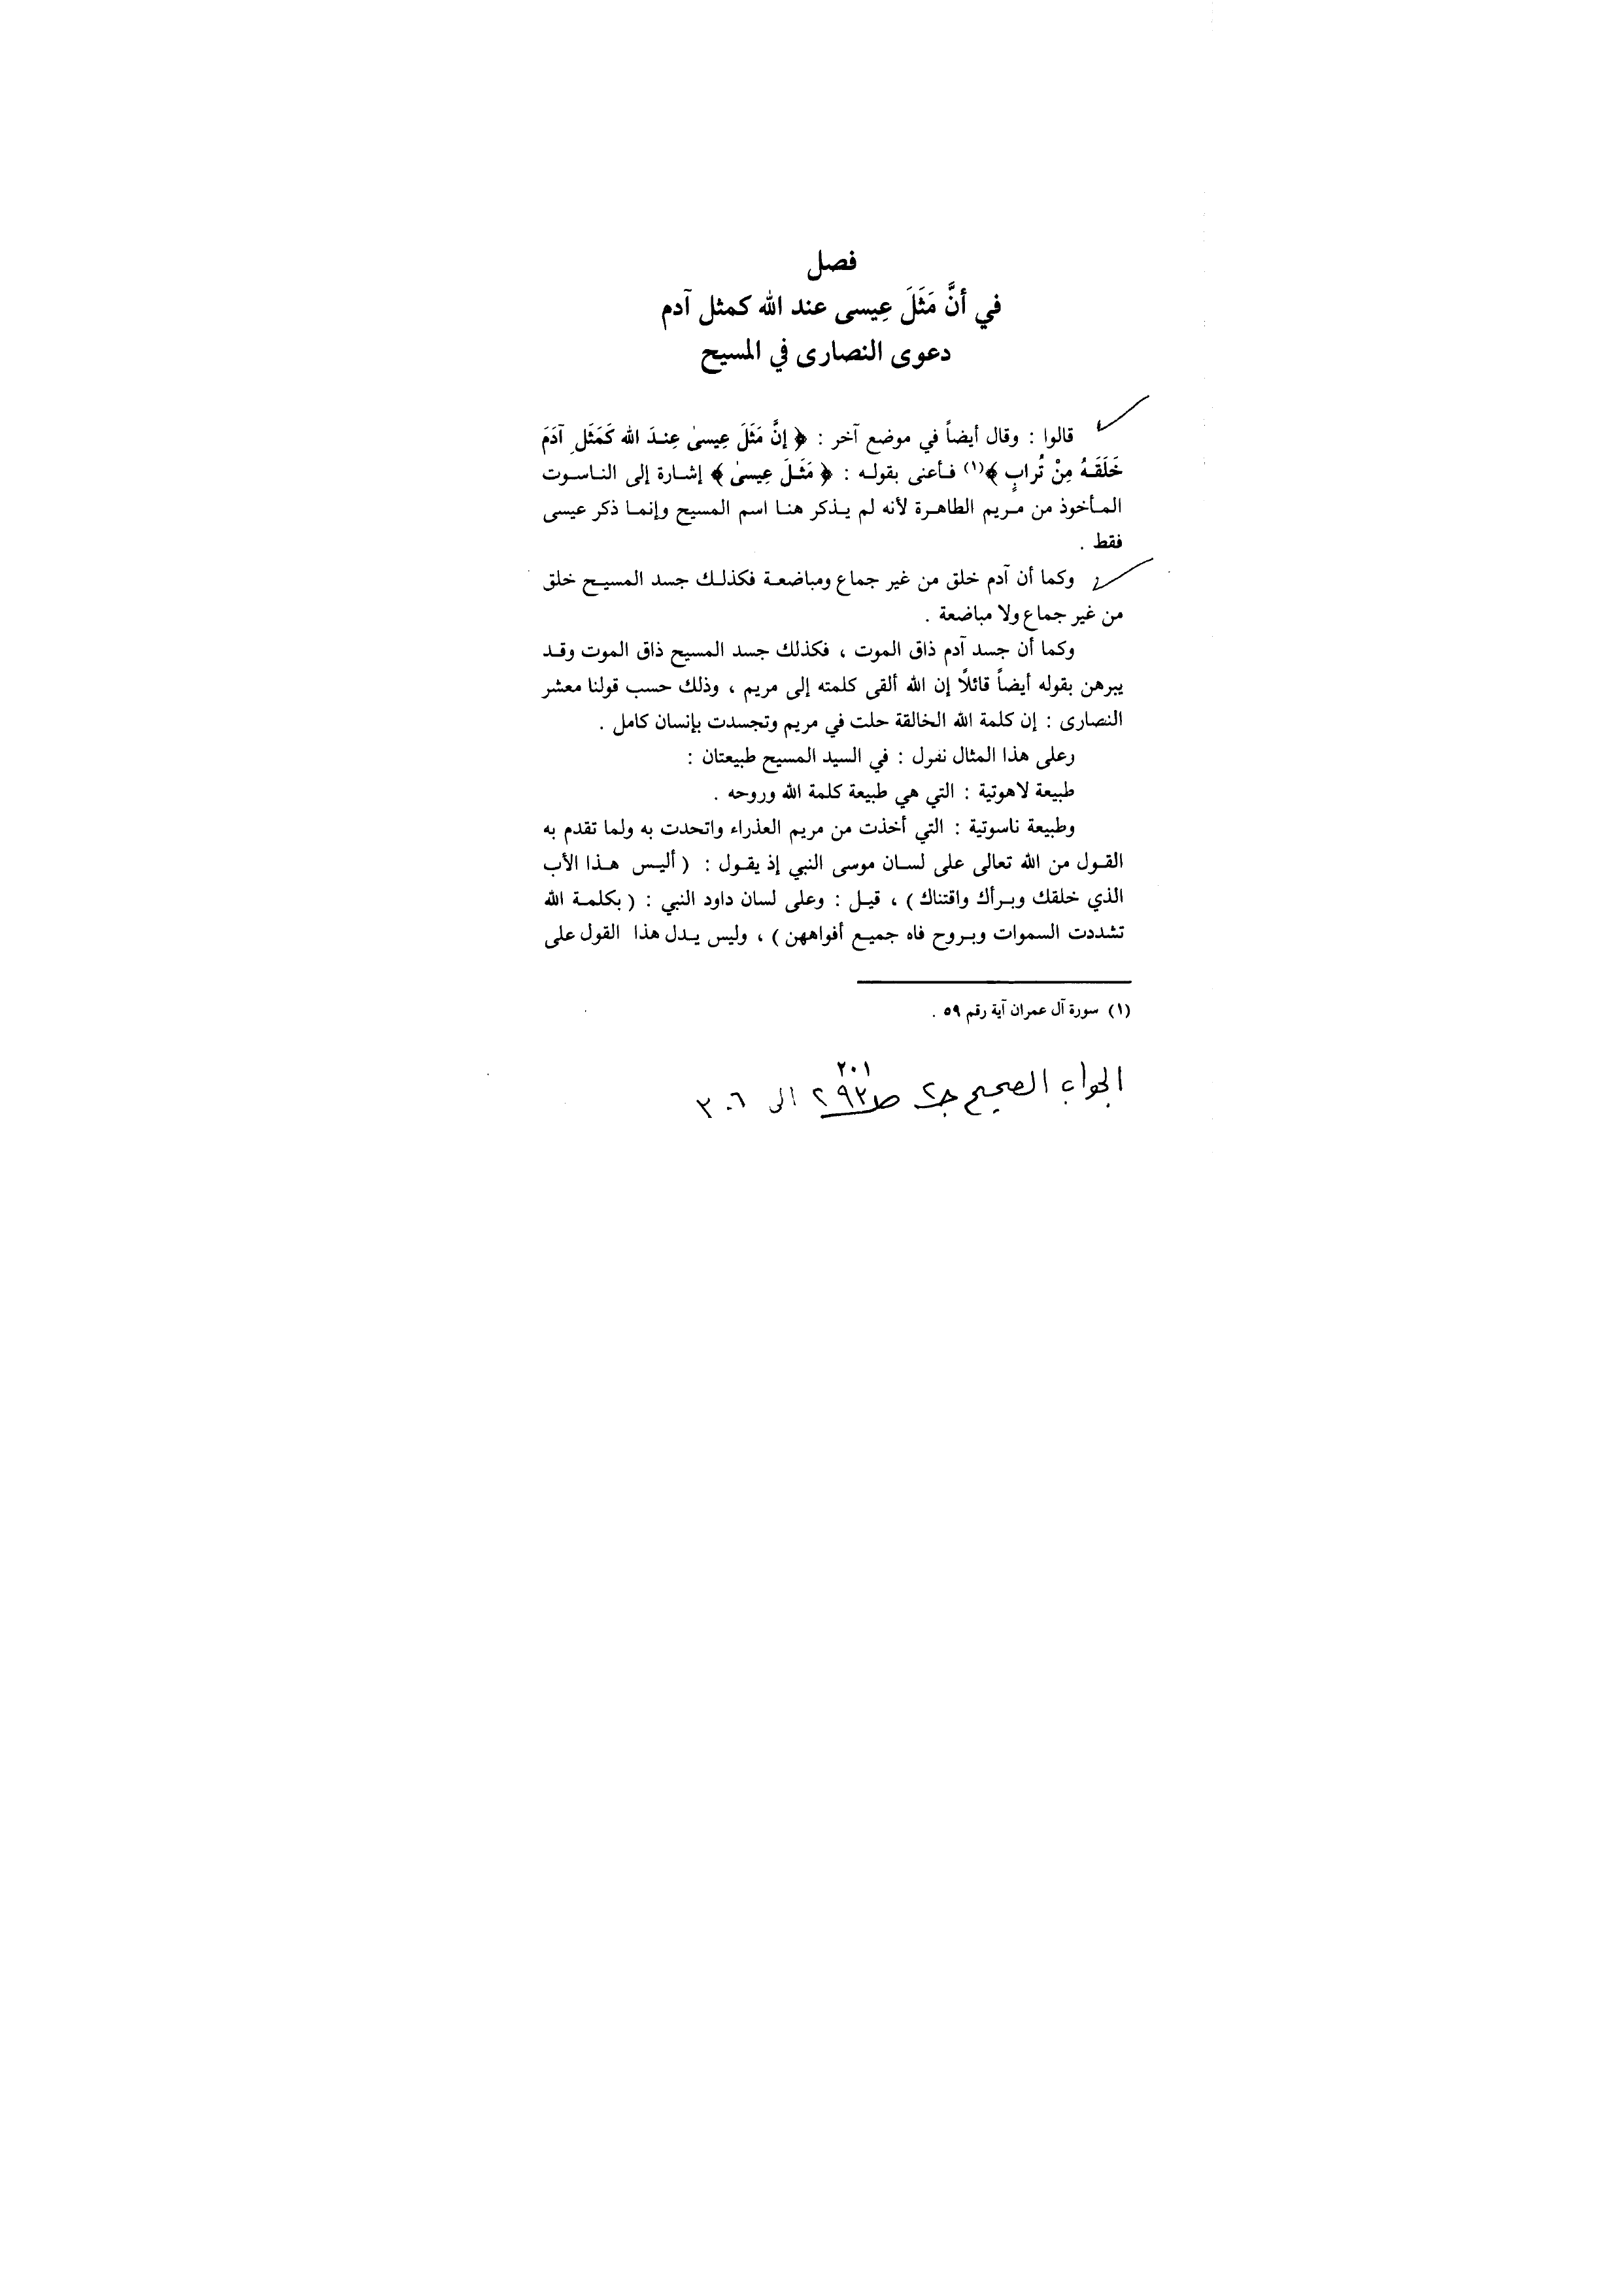 فصل
في أنَّ مَثَلَ عِيسى عند الله كمثل آدم
دعوى النصارى في المسيح
قالوا : وقال أيضاً في موضع آخر : ﴿ إنَّ مَثَلَ عِيسىٰ عِندَ الله كَمَثَلِ آدَمَ
خَلَقَهُ مِنْ تُرابٍ ﴾(١) فأعنى بقوله : ﴿ مَثَلَ عِيسىٰ ﴾ إشارة إلى الناسوت
المأخوذ من مريم الطاهرة لأنه لم يذكر هنا اسم المسيح وإنما ذكر عيسى
فقط .
وكما أن آدم خلق من غير جماع ومباضعة فكذلك جسد المسيح خلق
من غير جماع ولا مباضعة .
وكما أن جسد آدم ذاق الموت ، فكذلك جسد المسيح ذاق الموت وقد
يبرهن بقوله أيضاً قائلًا إن الله ألقى كلمته إلى مريم ، وذلك حسب قولنا معشر
النصارى : إن كلمة الله الخالقة حلت في مريم وتجسدت بإنسان كامل .
وعلى هذا المثال نقول : في السيد المسيح طبيعتان :
طبيعة لاهوتية : التي هي طبيعة كلمة الله وروحه .
وطبيعة ناسوتية : التي أخذت من مريم العذراء واتحدت به ولما تقدم به
القول من الله تعالى على لسان موسى النبي إذ يقول : ( أليس هذا الأب
الذي خلقك وبرأك واقتناك ) ، قيل : وعلى لسان داود النبي : ( بكلمة الله
تشددت السموات وبروح فاه جميع أفواههن ) ، وليس يدل هذا القول على
(١) سورة آل عمران آية رقم ٥٩ .
٢٠١
الجواب الصحيح جـ٢ ص ٢٩٣ الى ٣٠٦